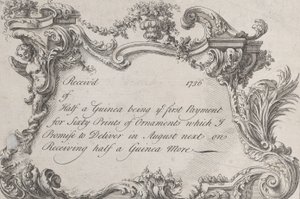 Receiv'd 1736
of
Half a Guinea being yᵉ first Payment
for Sixty Prints of Ornaments which I
Promise to Deliver in August next on
Receiving half a Guinea More